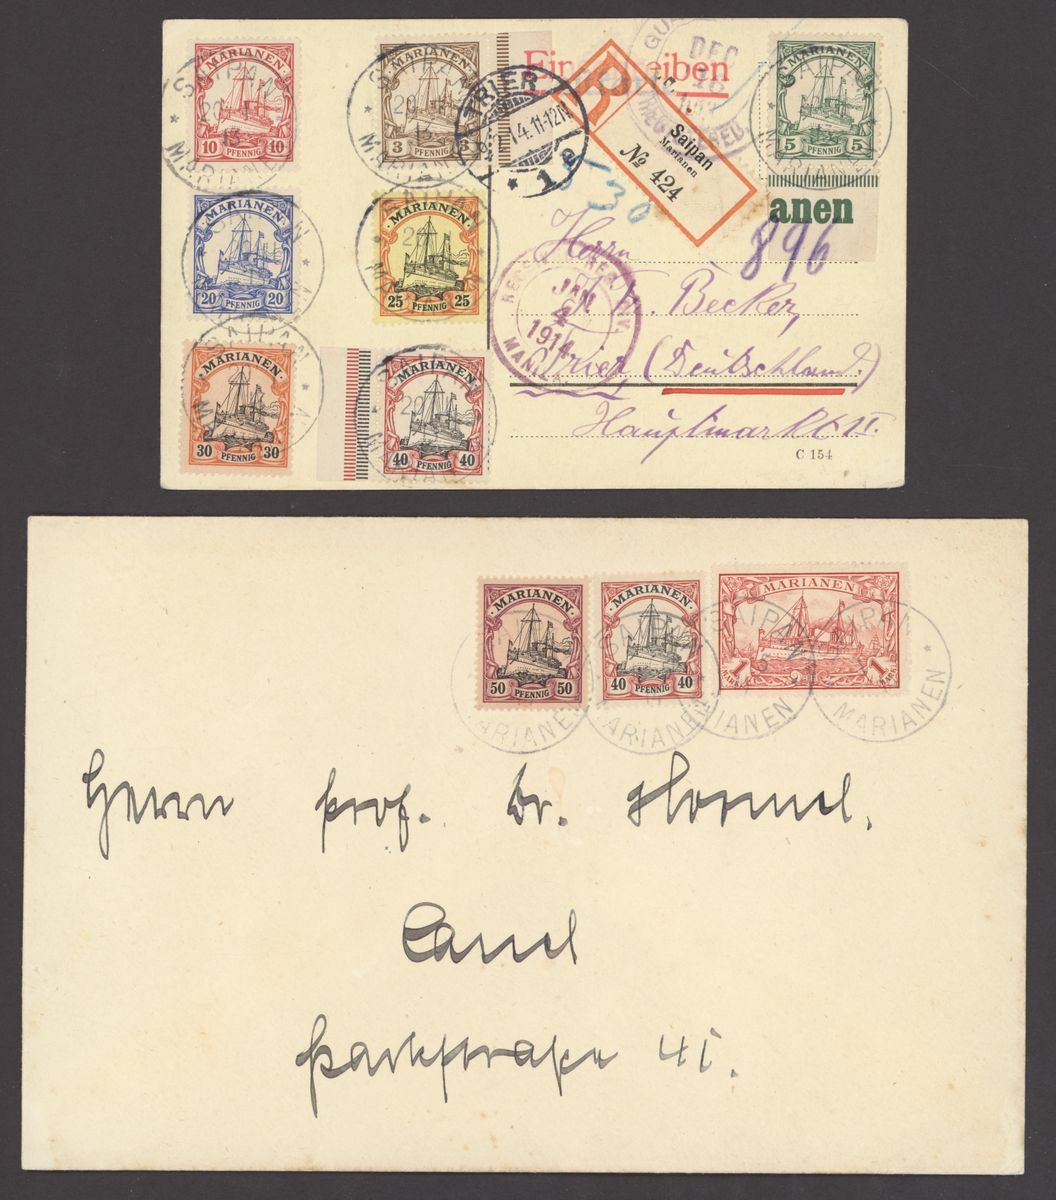 MARIANEN
10 PFENNIG 10
MARIANEN
3 PFENNIG 3
Einschreiben
MARIANEN
5 PFENNIG 5
anen
SAIPAN
20
13
MARIANEN
TRIER
1.4.11-12N
* 1 a
Saipan
Marianen
№ 424
DEC
REGISTERED.
5
30
896
MARIANEN
20 PFENNIG 20
MARIANEN
25 PFENNIG 25
Herrn
JAN
4
1914
MANILA
Becker,
Trier (Deutschland)
Hauptmarkt
C 154
MARIANEN
30 PFENNIG 30
MARIANEN
40 PFENNIG 40
MARIANEN
50 PFENNIG 50
MARIANEN
40 PFENNIG 40
MARIANEN
1 MARK
1 MARK
SAIPAN
MARIANEN
Herrn Prof. Dr. Hormel.
Cassel
Parkstraße 41.